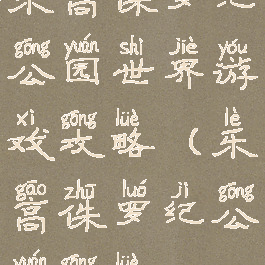 乐高侏罗纪
gōng yuán shì jiè yóu
公园世界游
xì gōng lüè lè
戏攻略（乐
gāo zhū luó jì gōng
高侏罗纪公
yuán gōng lüè